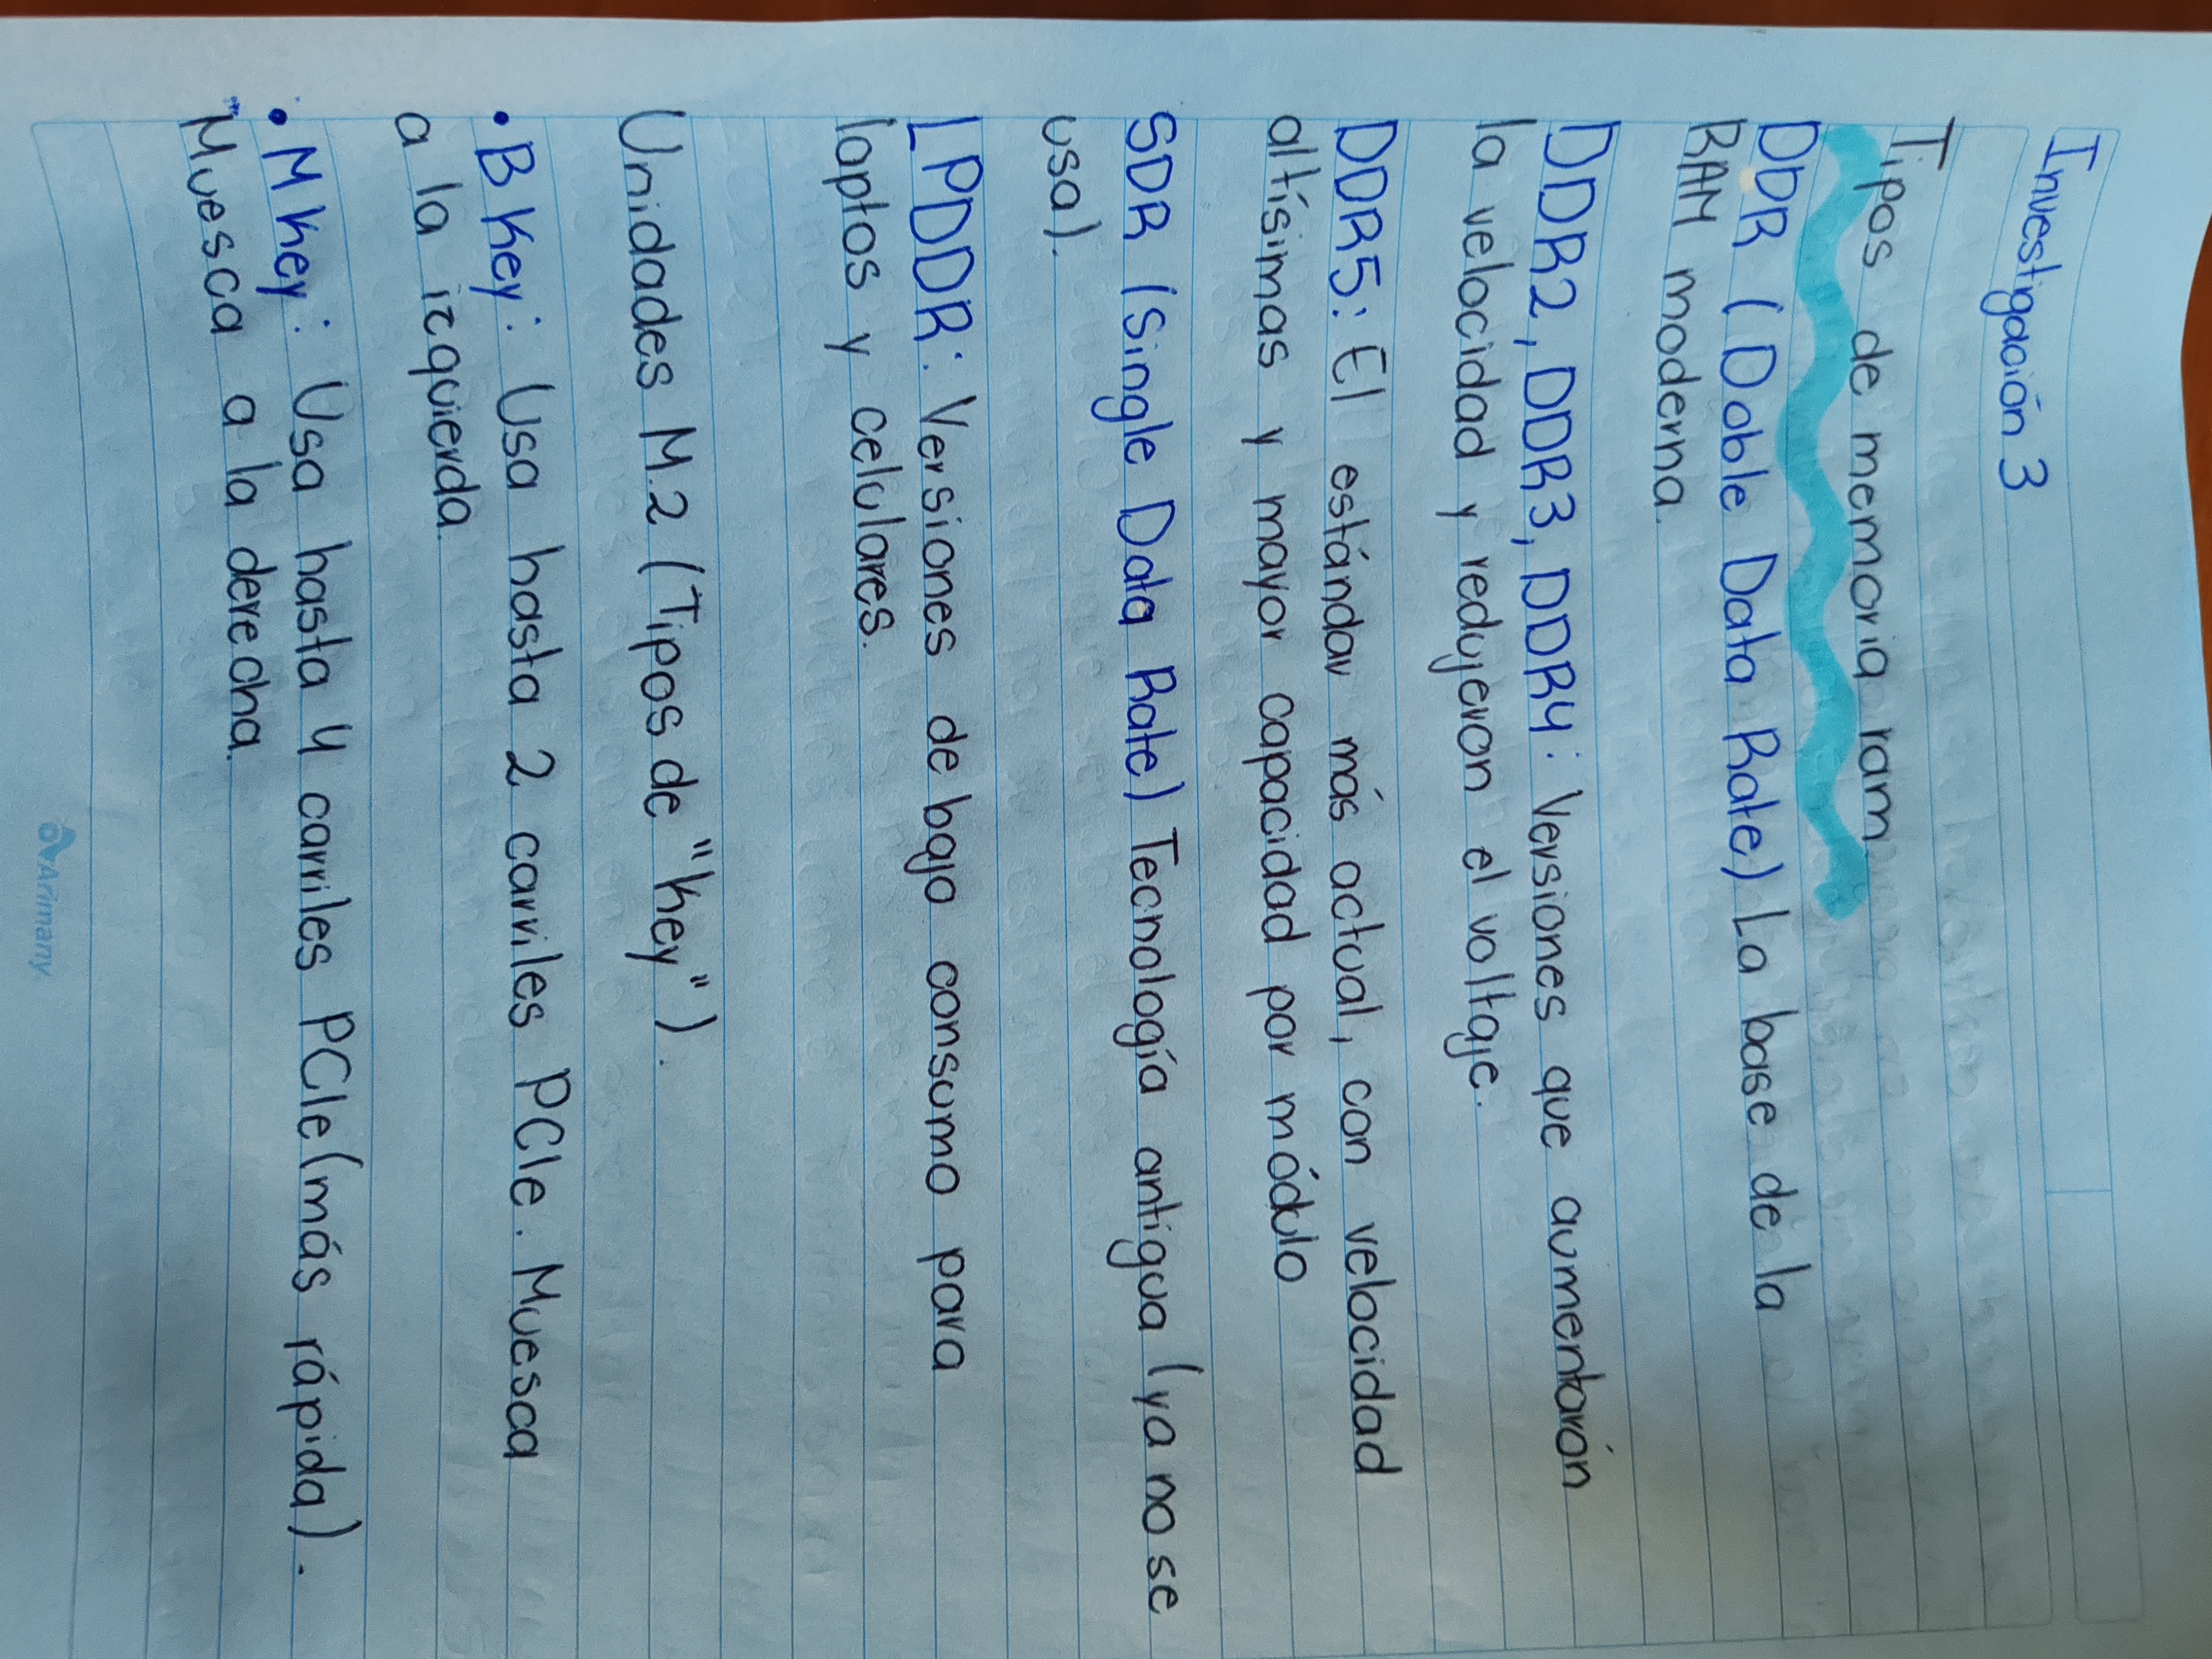 Investigación 3
Tipos de memoria ram
DDR (Doble Data Rate) La base de la
RAM moderna.
DDR2, DDR3, DDR4: Versiones que aumentarón
la velocidad y redujeron el voltaje.
DDR5: El estándar más actual, con velocidad
altísimas y mayor capacidad por módulo
SDR (Single Data Rate) Tecnología antigua (ya no se
usa).
LPDDR: Versiones de bajo consumo para
laptos y celulares.
Unidades M.2 (Tipos de "Key").
• B Key: Usa hasta 2 carriles PCIe. Muesca
a la izquierda.
• M Key: Usa hasta 4 carriles PCIe (más rápida).
Muesca a la derecha.
Arimany